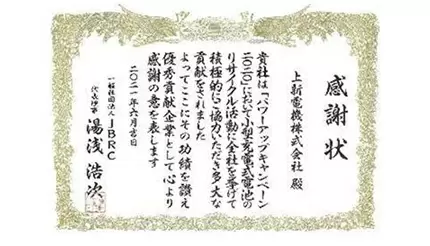 感謝状
上新電機株式会社 殿
貴社は「パワーアップキャンペーン
二〇二〇」において小型充電式電池の
リサイクル活動に全社を挙げて
積極的にご協力いただき多大な
貢献をされました
よってここにその功績を讃え
優秀貢献企業として心より
感謝の意を表します
二〇二一年六月吉日
一般社団法人JBRC
代表理事 湯浅 浩次